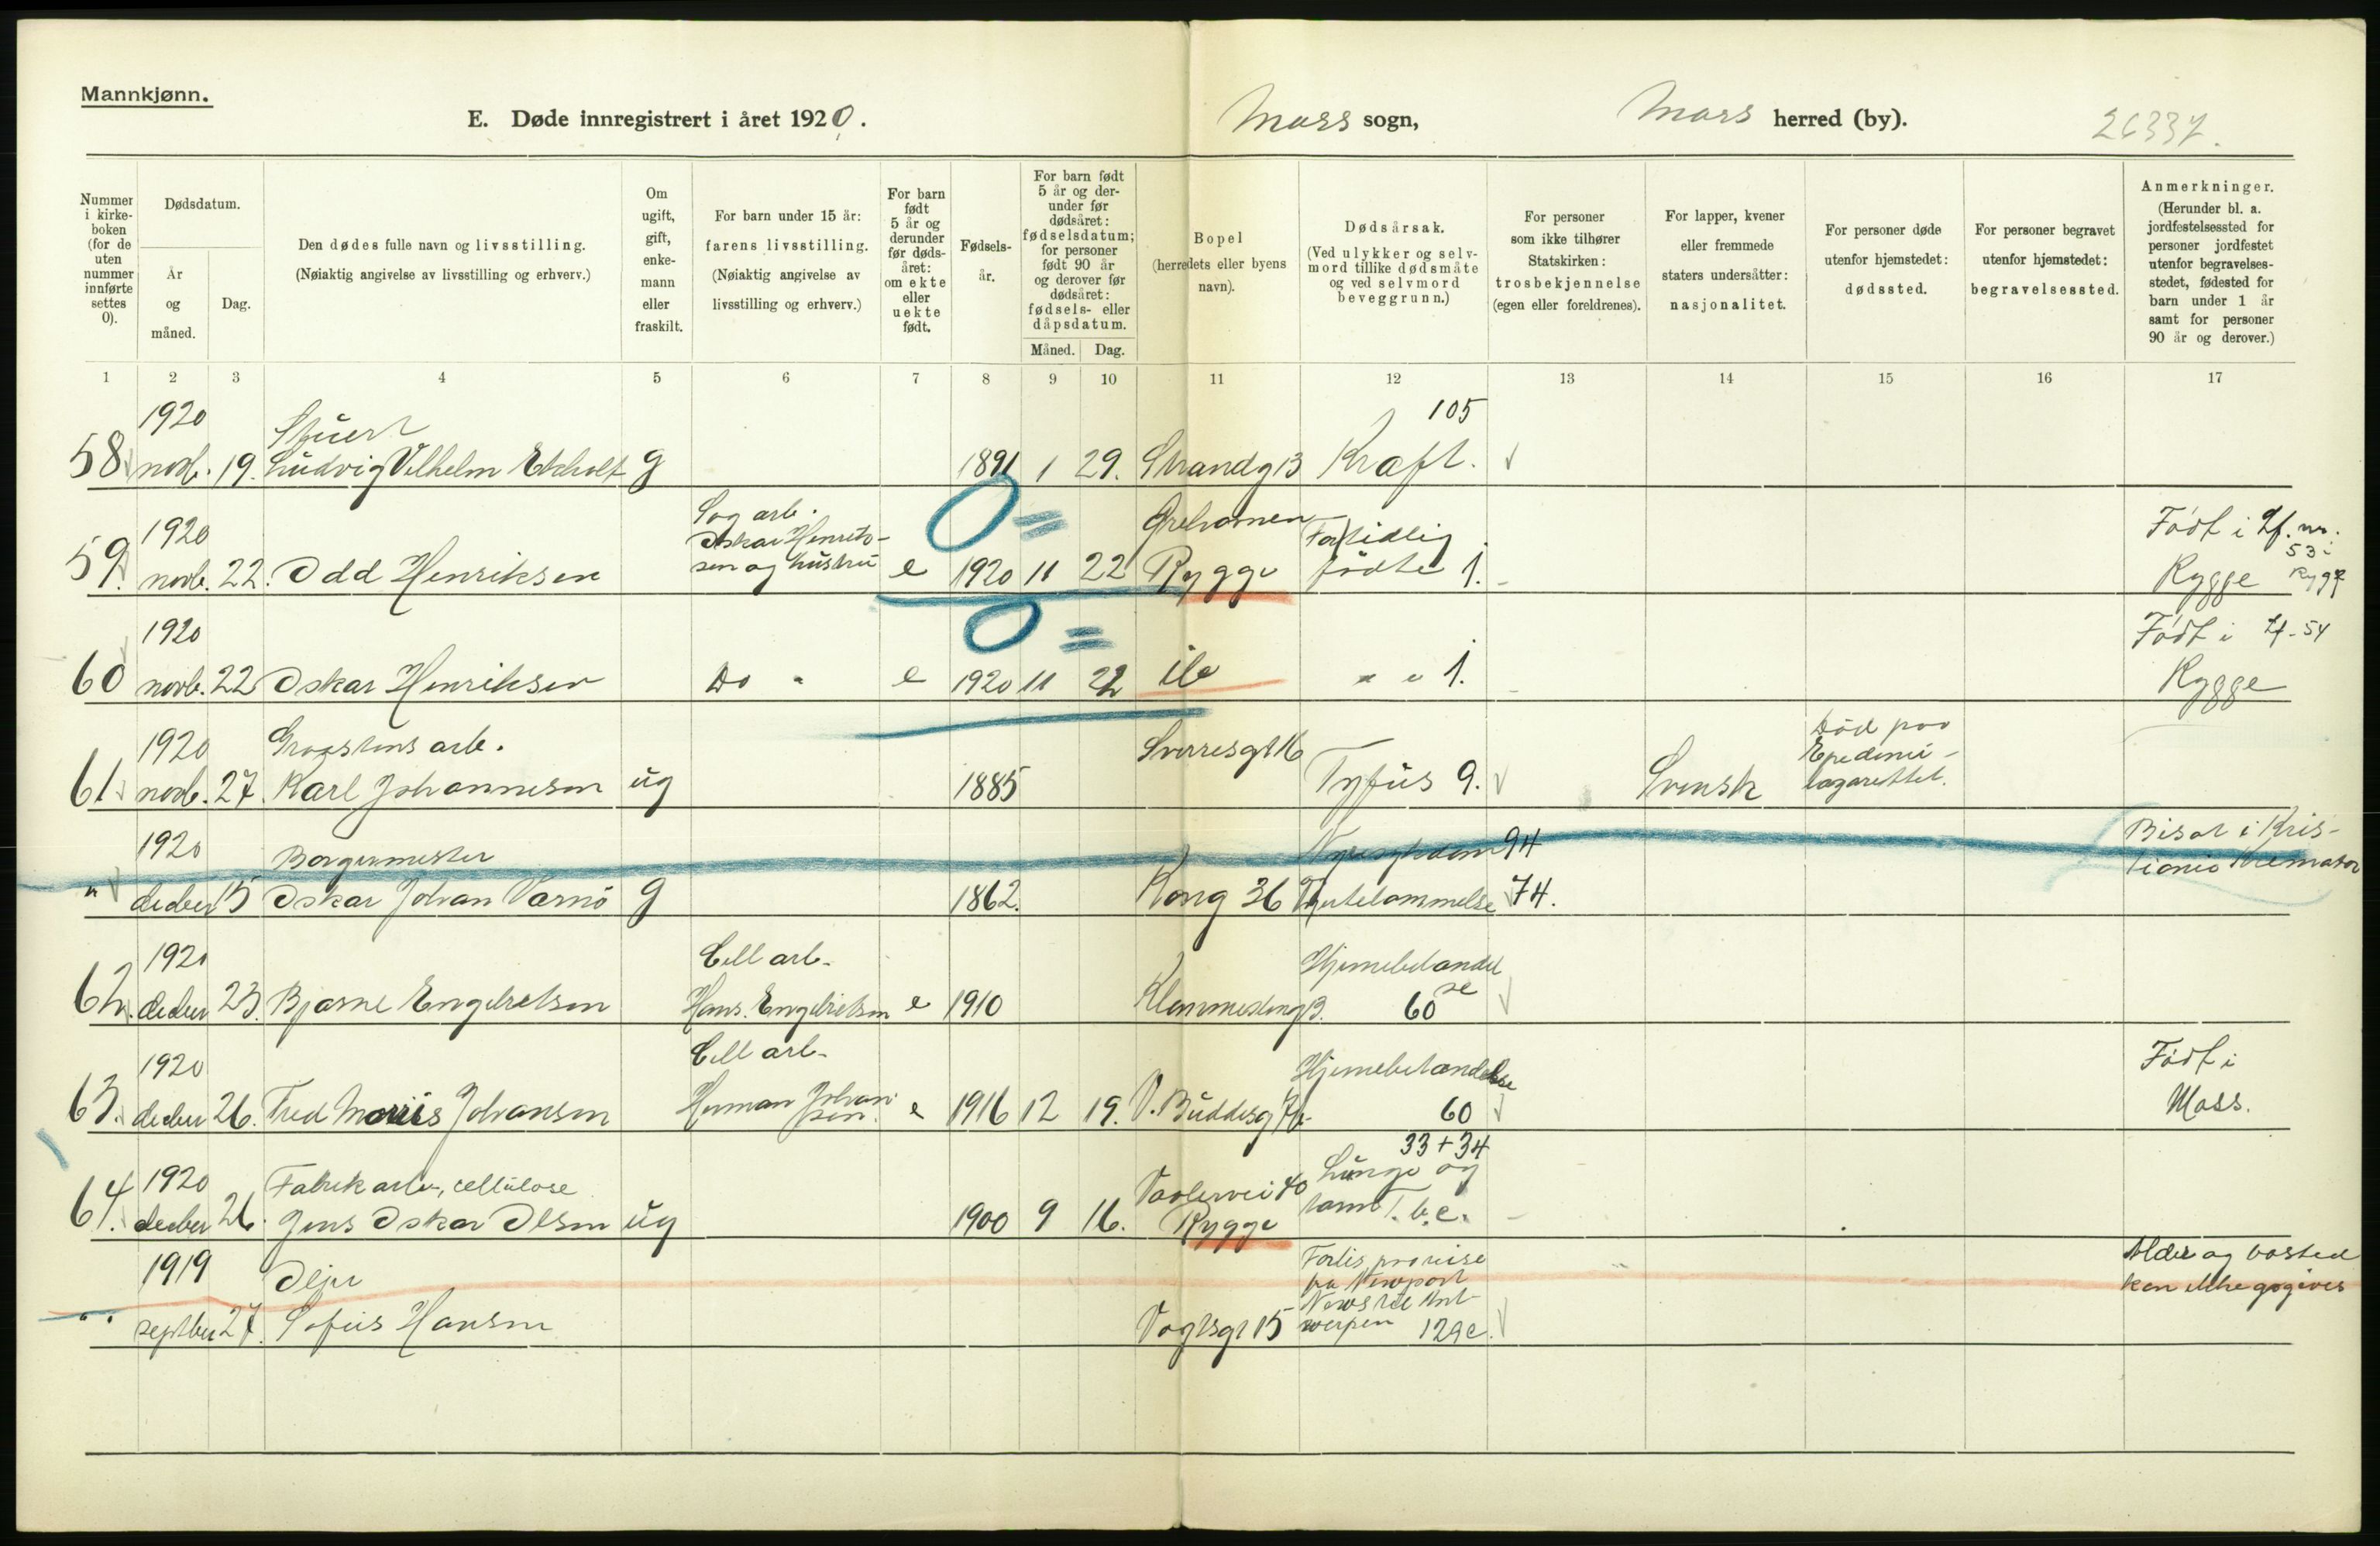 Mannkjønn.
E. Døde innregistrert i året 1920.
Moss sogn,
Moss herred (by).
26337.
Nummer i kirkeboken (for de uten nummer innførte settes 0).
Dødsdatum.
År og måned.
Dag.
Den dødes fulle navn og livsstilling.
(Nøiaktig angivelse av livsstilling og erhverv.)
Om ugift, gift, enkemann eller fraskilt.
For barn under 15 år: farens livsstilling.
(Nøiaktig angivelse av livsstilling og erhverv.)
For barn født 5 år og derunder før dødsåret: om ekte eller uekte født.
Fødselsår.
For barn født 5 år og derunder før dødsåret: fødselsdatum; for personer født 90 år og derover før dødsåret: fødsels- eller dåpsdatum.
Måned. Dag.
Bopel
(herredets eller byens navn).
Dødsårsak.
(Ved ulykker og selvmord tillike dødsmåte og ved selvmord beveggrunn.)
For personer som ikke tilhører Statskirken: trosbekjennelse (egen eller foreldrenes).
For lapper, kvener eller fremmede staters undersåtter: nasjonalitet.
For personer døde utenfor hjemstedet: dødssted.
For personer begravet utenfor hjemstedet: begravelsessted.
Anmerkninger.
(Herunder bl. a. jordfestelsessted for personer jordfestet utenfor begravelsesstedet, fødested for barn under 1 år samt for personer 90 år og derover.)
1 2 3 4 5 6 7 8 9 10 11 12 13 14 15 16 17
1920 Stuert 105
58 novb. 19. Ludvig Vilhelm Ekholt g 1891 1 29. Strandg 13 Kræft.
1920 Sag arb. Oskar Henriksen og hustru
59. novb. 22. Odd Henriksen e 1920 11 22 Rygge For tidlig fødte 1. Født i Rygge Lf. nr. 53 i Rygge
1920
60 novb. 22 Oskar Henriksen Do " e 1920 11 22 " " 1. Født i Rygge Lf. 54
1920 Graastens arb.
61 novb. 27. Karl Johannesen ug 1885 Sverresgt 16 Tyfus 9. Svensk Død paa Epedemilazarettet.
1920 Borgermester 94
" decber 15 Oskar Johan Varnö g 1862. Kong 36 Hjertelammelse 74. Bisat i Kristiania Kremator
1920 Cell arb.
62. decber 23. Bjarne Engebretsen Hans Engebretsen e 1910 Hjernebetændelse 60
1920 Cell arb.
63. decber 26. Fred Moris Johansen Herman Johansen. e 1916 12 19. Hjernebetændelse 60 Født i Moss.
1920 Fabrikarb., cellulose 33+34
64. decber 26. Jens Oskar Olsen ug 1900 9 16. Vaalervei 40 Rygge Lunge og tarm T.b.c.
1919
" septber 27. Sofus Hansen Vogtsgt 15 Forlis paa reise fra Newport News til Antwerpen 129c. Alder og bosted kan ikke opgives